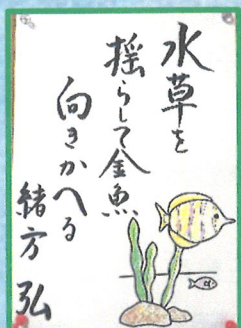 水草を
揺らして金魚
向きかへる
緒方弘